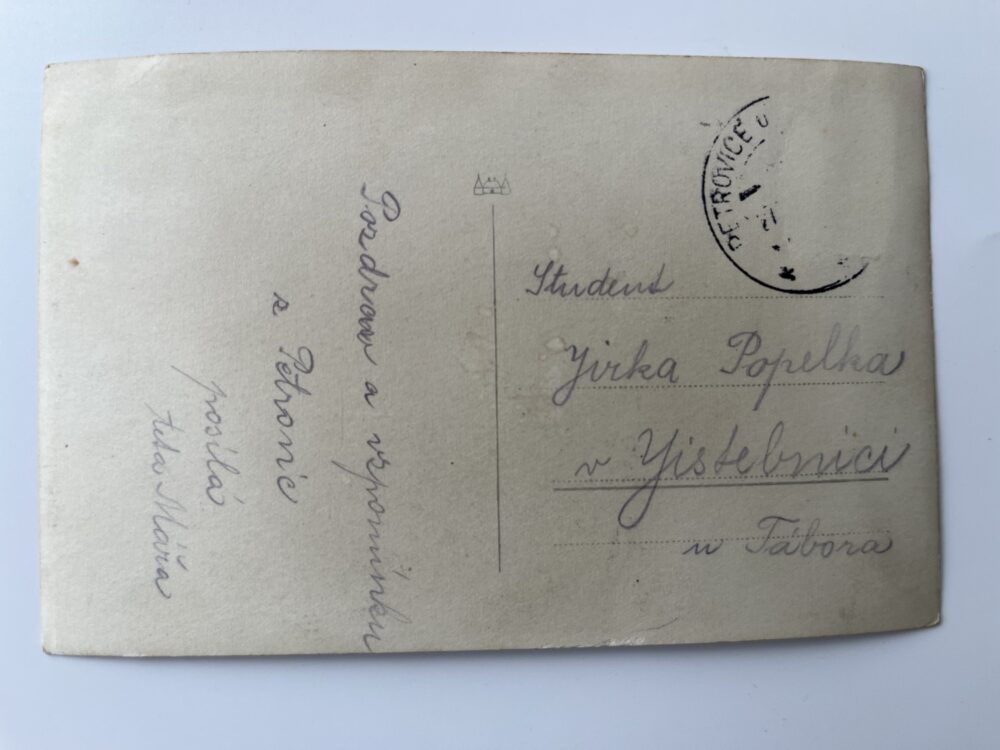 Pozdrav a vzpomínku
z Petrovic
posílá
teta Máňa
PETROVICE U
Student
Jirka Popelka
v Jistebnici
u Tábora